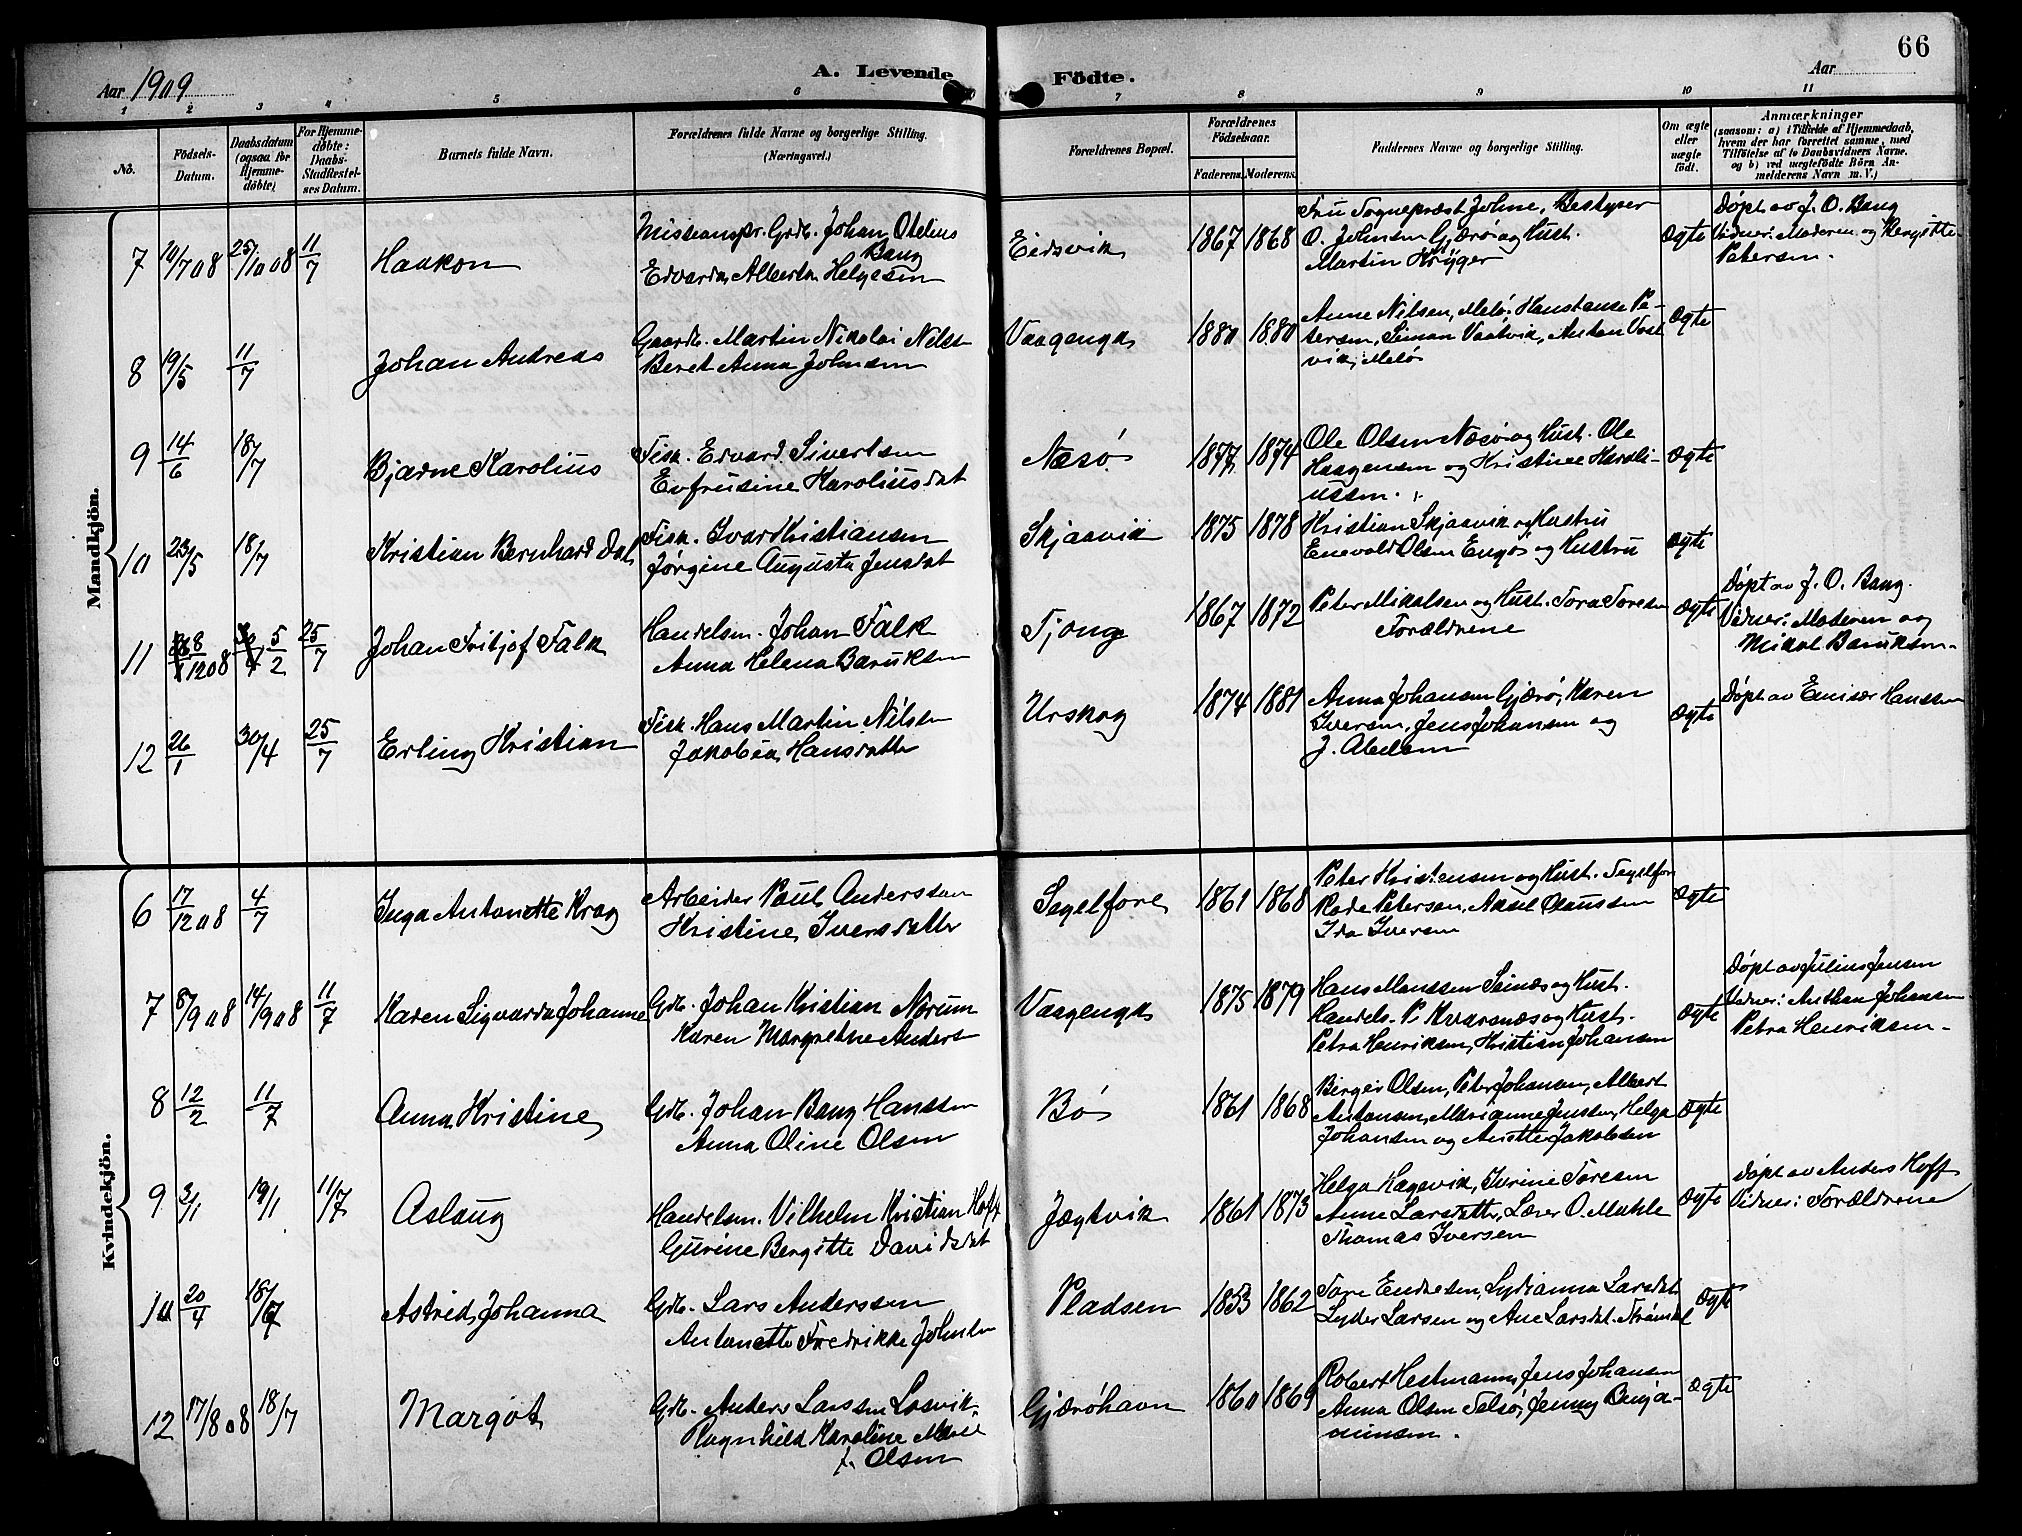 66
Aar 1909
A. Levende Födte.
Aar
1 2 3 4 5 6 7 8 9 10 11
No.
Födsels-Datum.
Daabsdatum (ogsaa for Hjemmedöbte)
For Hjemmedöbte: Daabs-Stadfæstelses Datum.
Barnets fulde Navn.
Forældrenes fulde Navne og borgerlige Stilling.
(Næringsvei.)
Forældrenes Bopæl.
Forældrenes Födselsaar.
Faderens. Moderens.
Faddernes Navne og borgerlige Stilling.
Om ægte eller uægte födt.
Anmærkninger
(saasom: a) i Tilfælde af Hjemmedaab,
hvem der har forrettet samme, med
Tilföielse af to Daabsvidners Navne.
og b) ved uægtefödte Börn An-
melderens Navn m. V.)
Mandkjön.
7 10/7 08 25/10 08 11/7 Haakon
Missionspr. Grdb. Johan Otelius
Bang
Edvarda Alberta Helgesen
Eidsvik 1867 1868
Fru Sogneprest Johne, Bestyrer
O. Johnsen Gjærø og Hust.
Martin Krÿger
Ægte
Døpt av J. O. Bang
Vidner: Moderen og Bergitte
Petersen.
8 19/5 11/7 Johan Andreas
Gaardb. Martin Nikolai Nilss
Beret Anna Johnsen
Vaagenga 1880 1880
Anne Nilsen, Melø, Hanstanse Pe-
tersen, Simon Vaatvik, Anton Vaat
vik, Melø
Ægte
9 14/6 18/7 Bjarne Karolius
Fisk. Edvard Sivertsen
Evfrusine Karoliusdat
Næsø 1877 1874
Ole Olsen Næsø og Hust. Ole
Haagensen og Kristine Karoli-
ussen.
Ægte
10 23/5 18/7 Kristian Bernhard Dal
Fisk. Ivar Kristiansen
Jørgine Augusta Jensdat
Skjaavik 1875 1878
Kristian Skjaavik og Hustru
Enevold Olsen Engø og Hustru
Ægte
11 8/12 08 5/2 25/7 Johan Fritjof Falk
Handelsm. Johan Falk
Anna Helena Baruksen
Tjong 1867 1872
Peter Mikalsen og Hust. Tora Toresen
Forældrene
Ægte
Døpt av J. O. Bang.
Vidner: Moderen og
Mikal Baruksen.
12 26/1 30/4 25/7 Erling Kristian
Fisk. Hans Martin Nilsen
Jakobia Hansdatter
Urskog 1874 1881
Anna Johansen Gjærø, Karen
Iversen, Jens Johansen og
J. Abelsen
Ægte
Døpt av Emisær Hanssen
Kvindekjön.
6 17/12 08 4/7 Inga Antonette Krag
Arbeider Poul Anderssen
Kristine Iversdatter
Segelfore 1861 1868
Peter Kristensen og Hust. Segelfor
Petersen, Aksel Olaussen
Ida Iversen
Ægte
7 8/9 08 14/9 08 11/7 Karen Sigvarda Johanne
Grdb. Johan Kristian Nørum
Karen Margrethe Anders
Vaagenga 1875 1879
Hans Monssen Selnæs og Hust.
Handels. P. Kvarsnæs og Hust.
Petra Henriksen, Kristian Johansen
Ægte
Døpt av Julius Jensen
Vidner: Anthon Johansen
Petra Henriksen
8 12/2 11/7 Anna Kristine
Grdb. Johan Bang Hanssen
Anna Oline Olsen
Bø 1861 1868
Birger Olsen, Peter Johansen, Albert
Antonsen, Marianne Jenssen, Helga
Johansen og Anette Jakobsen
Ægte
9 3/1 19/1 11/7 Aslaug
Handelsm. Vilhelm Kristian Hoff
Gurine Bergitte Davidsdat
Jægtvik 1861 1873
Helga Hagevik, Iverine Toresen
Anne Larsdatter, Lærer O. Mahle
Thomas Iversen
Ægte
Døpt av Anders Hoff
Vidner: Forældrene
10 20/4 18/7 Astrid Johanna
Grdb. Lars Anderssen
Antonette Fredrikke Johnsen
Pladsen 1853 1862
Tore Endresen, Lydianna Larsdat
Lyder Larsen og Ane Larsdat.
Ægte
12 17/8 08 18/7 Margot
Grdb. Anders Larssen Losvik
Ragnhild Karoline Marie
f. Olsen
Gjærøhavn 1860 1869
Robert Hestmann, Jens Johansen
Anna Olsen Selsø, Jenny Benja-
minsen.
Ægte